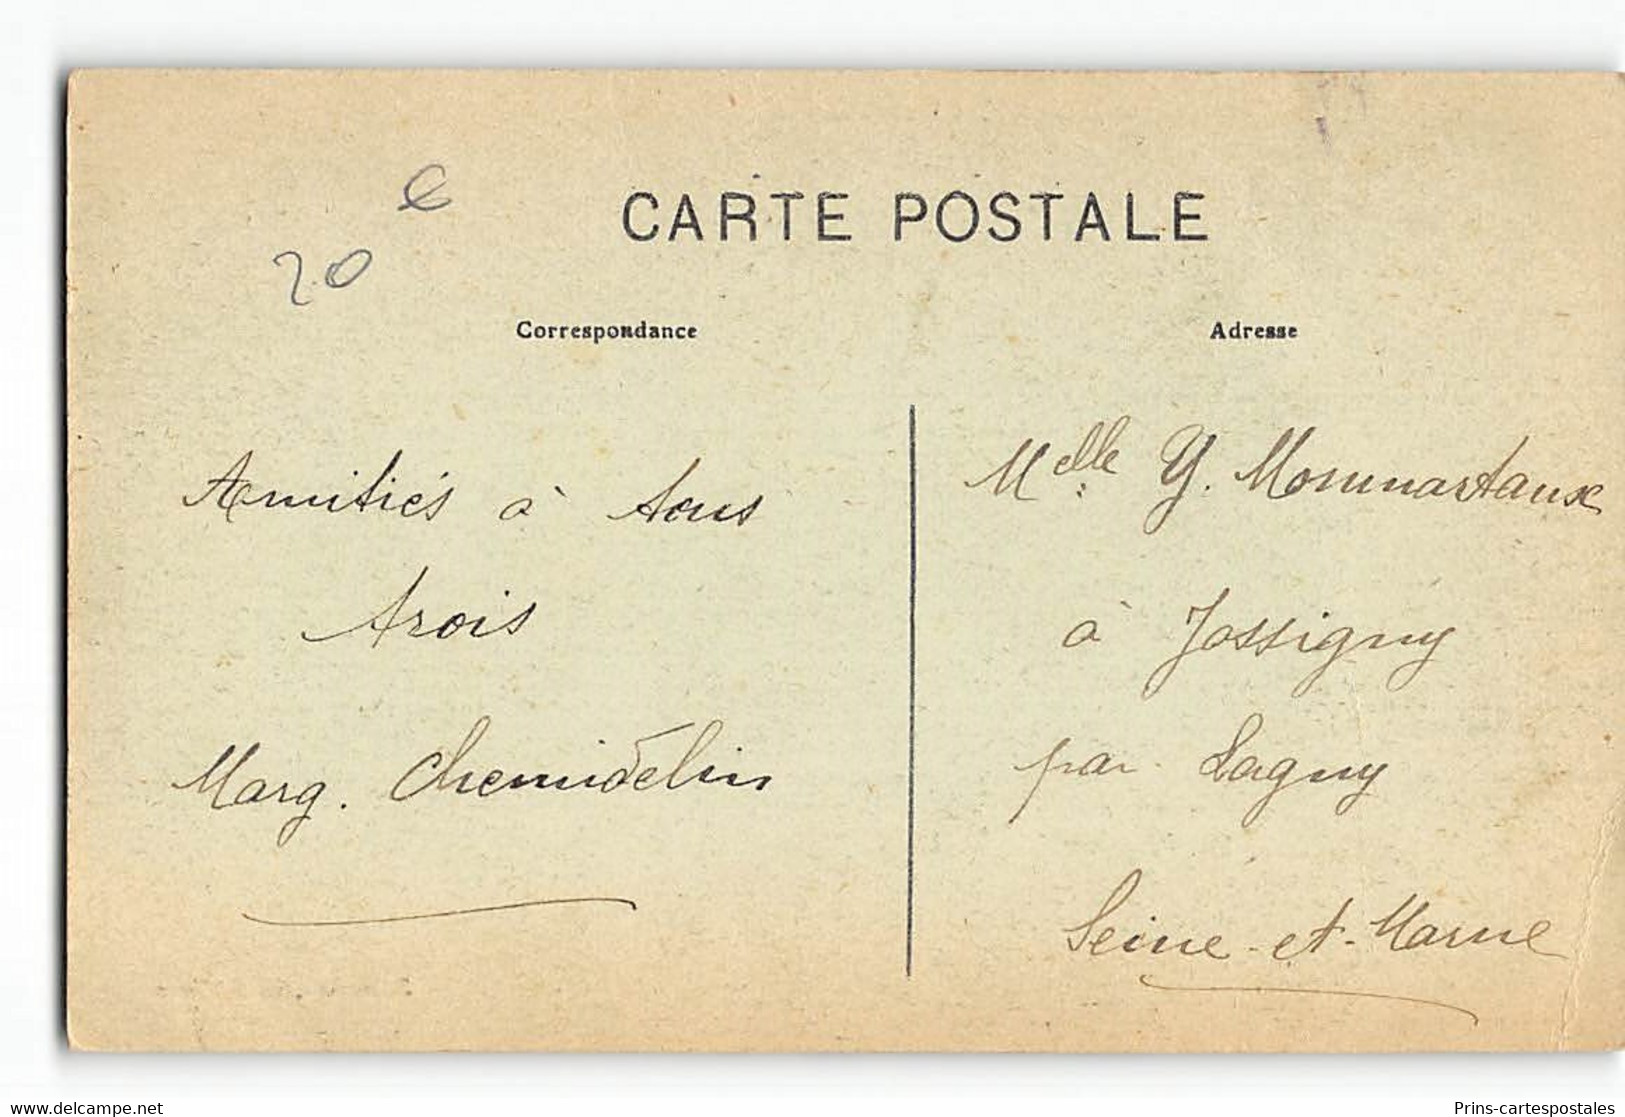 €
20
CARTE POSTALE
Correspondance
Adresse
Amitiés à tous
trois
Marg. Chemidelin
Melle Y. Mommartaux
à Jossigny
par Lagny
Seine-et-Marne
www.delcampe.net
Prins-cartespostales